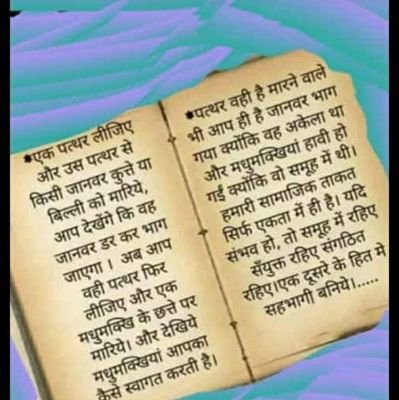 *एक पत्थर लीजिए
और उस पत्थर से
किसी जानवर कुत्ते या
बिल्ली को मारिये,
आप देखेंगे कि वह
जानवर डर कर भाग
जाएगा । अब आप
वही पत्थर फिर
लीजिए और एक
मधुमक्खि के छत्ते पर
मारिये। और देखिये
मधुमक्खियां आपका
कैसे स्वागत करती है।
*पत्थर वही है मारने वाले
भी आप ही है जानवर भाग
गया क्योंकि वह अकेला था
और मधुमक्खियां हावी हो
गईं क्योंकि वो समूह में थी।
हमारी सामाजिक ताकत
सिर्फ एकता में ही है। यदि
संभव हो, तो समूह में रहिए
सँयुक्त रहिए संगठित
रहिए।एक दूसरे के हित मे
सहभागी बनिये।.....